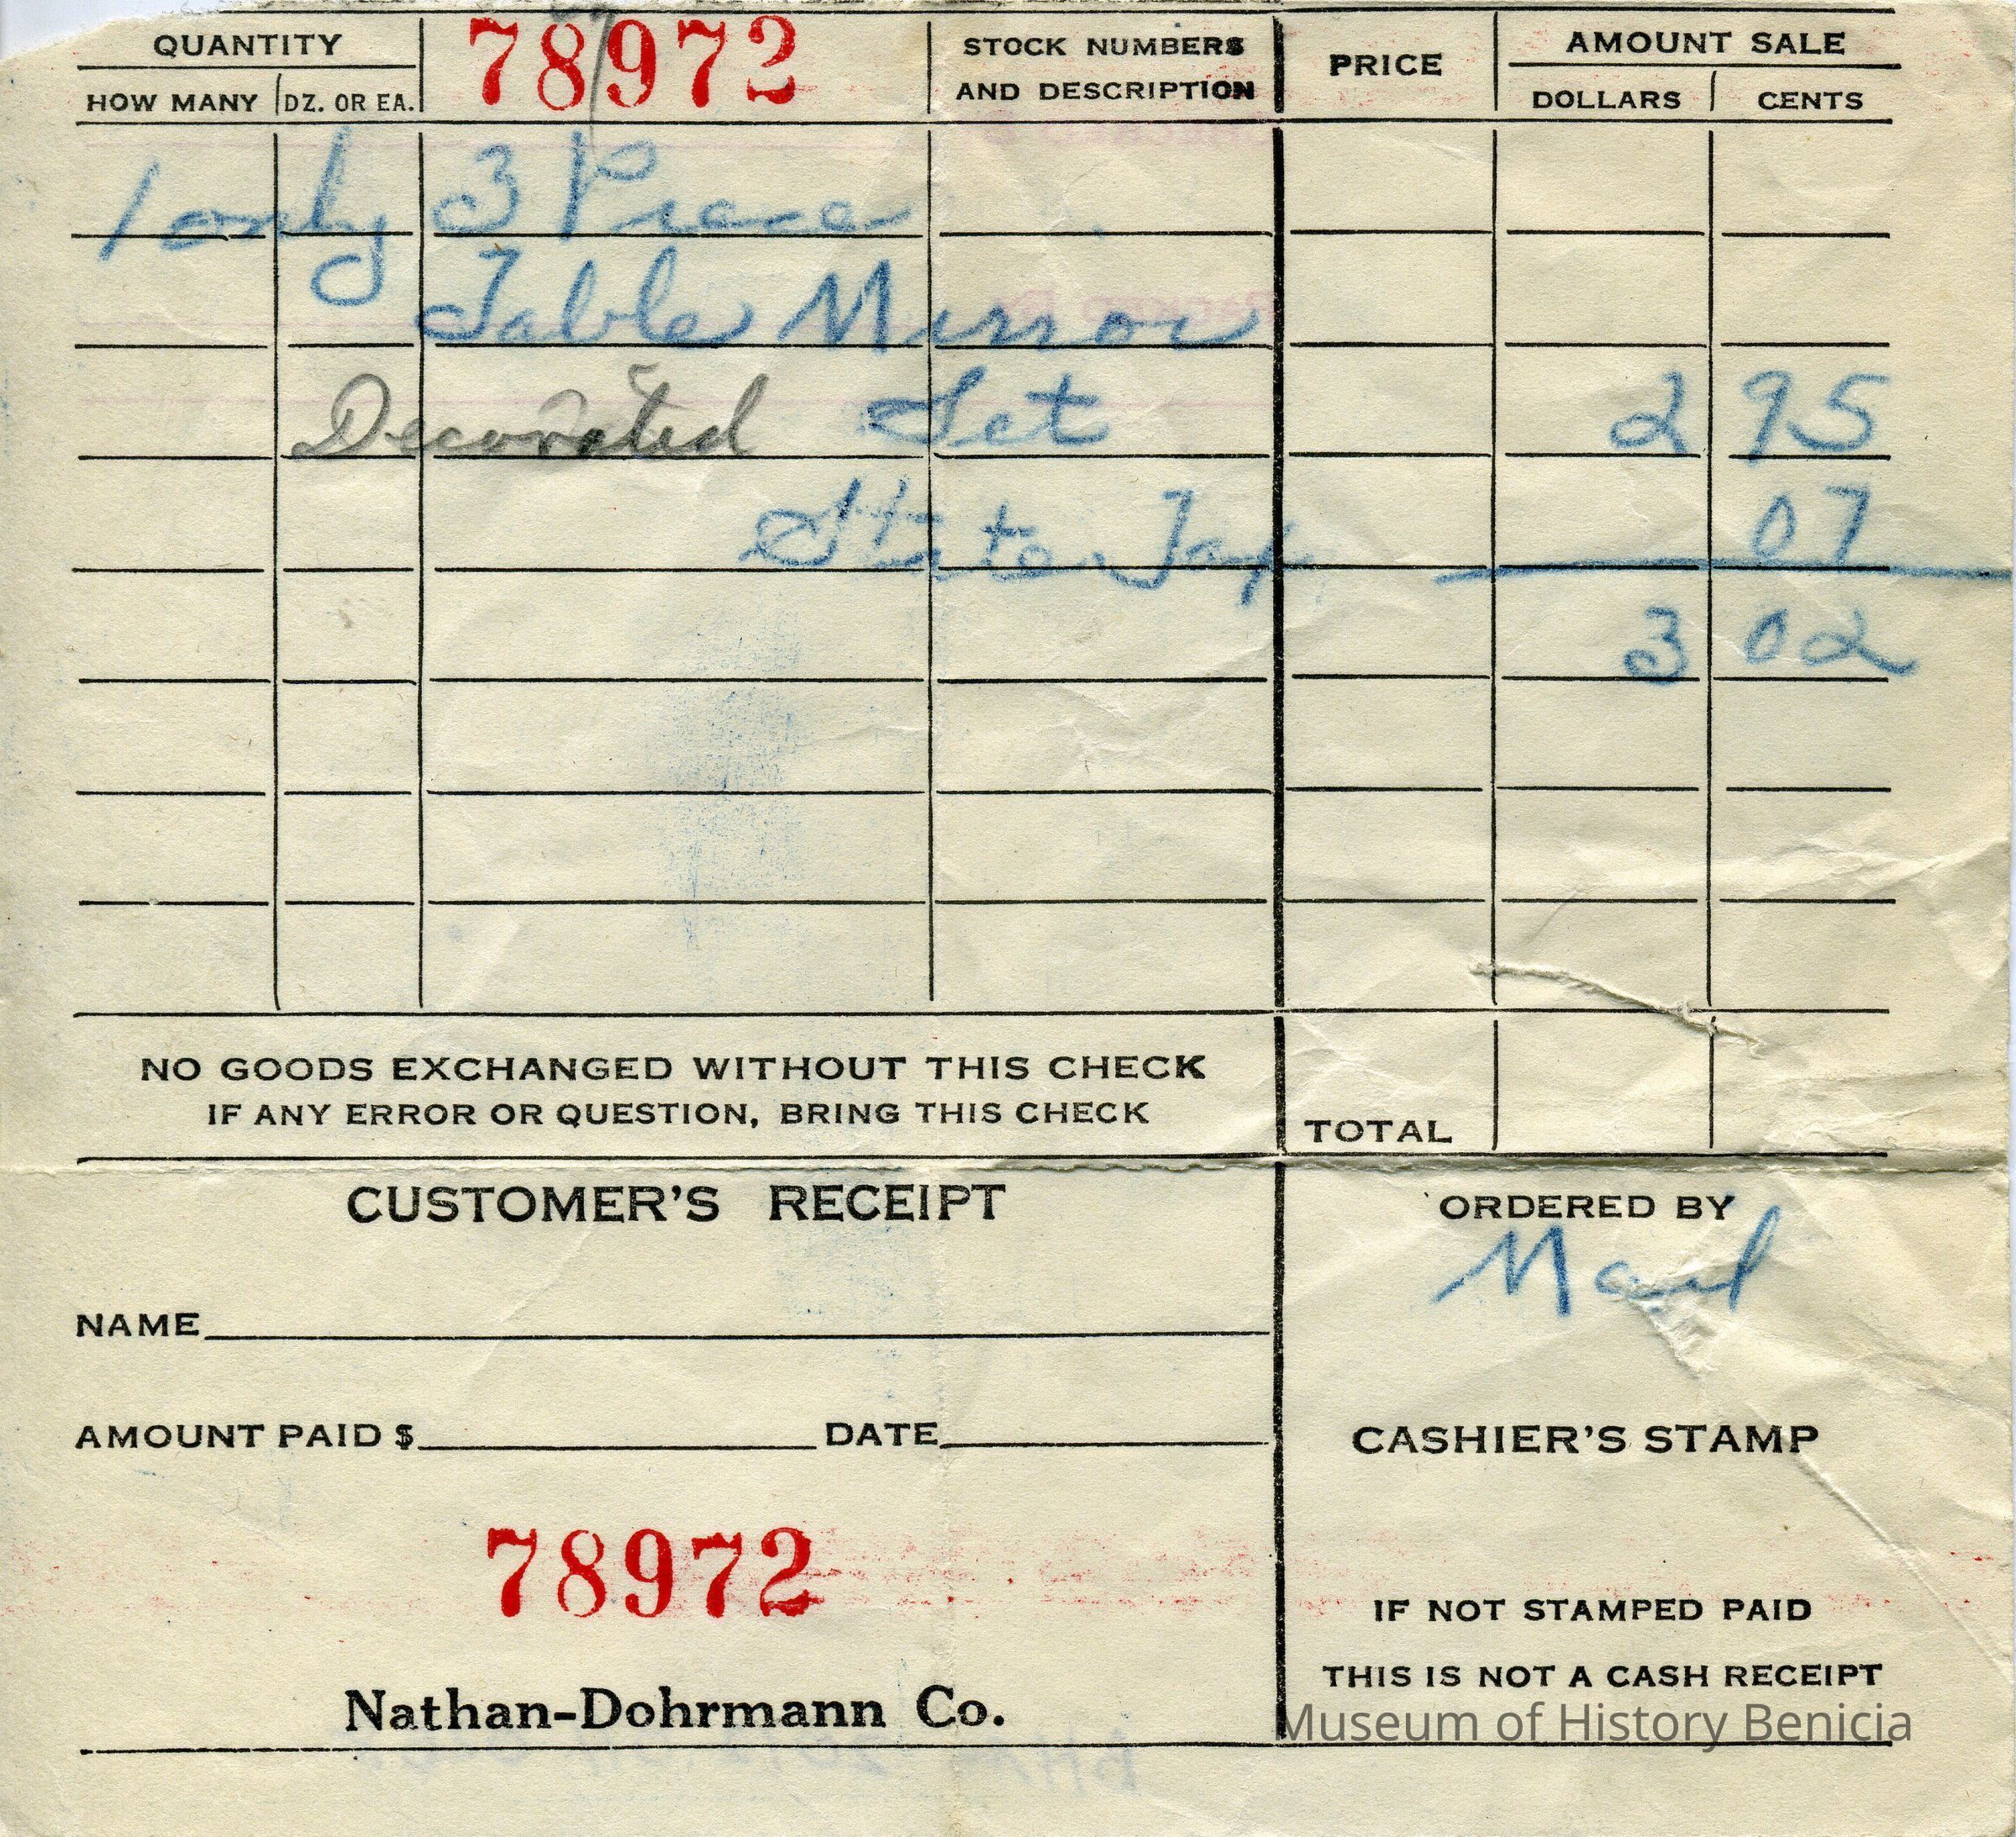 QUANTITY
HOW MANY DZ. OR EA.
78972
STOCK NUMBERS
AND DESCRIPTION
PRICE
AMOUNT SALE
DOLLARS CENTS
1 only 3 Piece
Table Mirror
Decorated Set 2 95
State Tax 07
3 02
NO GOODS EXCHANGED WITHOUT THIS CHECK
IF ANY ERROR OR QUESTION, BRING THIS CHECK
TOTAL
CUSTOMER'S RECEIPT
NAME
AMOUNT PAID $ DATE
78972
Nathan-Dohrmann Co.
ORDERED BY
Mail
CASHIER'S STAMP
IF NOT STAMPED PAID
THIS IS NOT A CASH RECEIPT
Museum of History Benicia